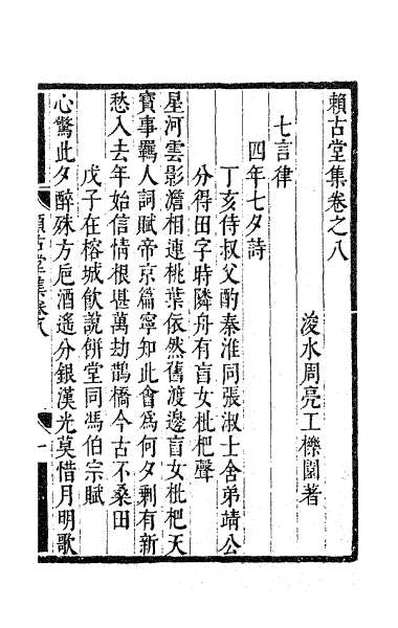 賴古堂集卷之八
浚水周亮工櫟園著
七言律
四年七夕詩
丁亥侍叔父酌秦淮同張淑士舍弟靖公
分得田字時隣舟有盲女枇杷聲
星河雲影澹相連桃葉依然舊渡邊盲女枇杷天
寶事羈人詞賦帝京篇寧知此會為何夕剩有新
愁入去年始信情根堪萬劫鵲橋今古不桑田
戊子在榕城飲說餅堂同馮伯宗賦
心驚此夕醉殊方巵酒遙分銀漢光莫惜月明歌
賴古堂集卷八
一